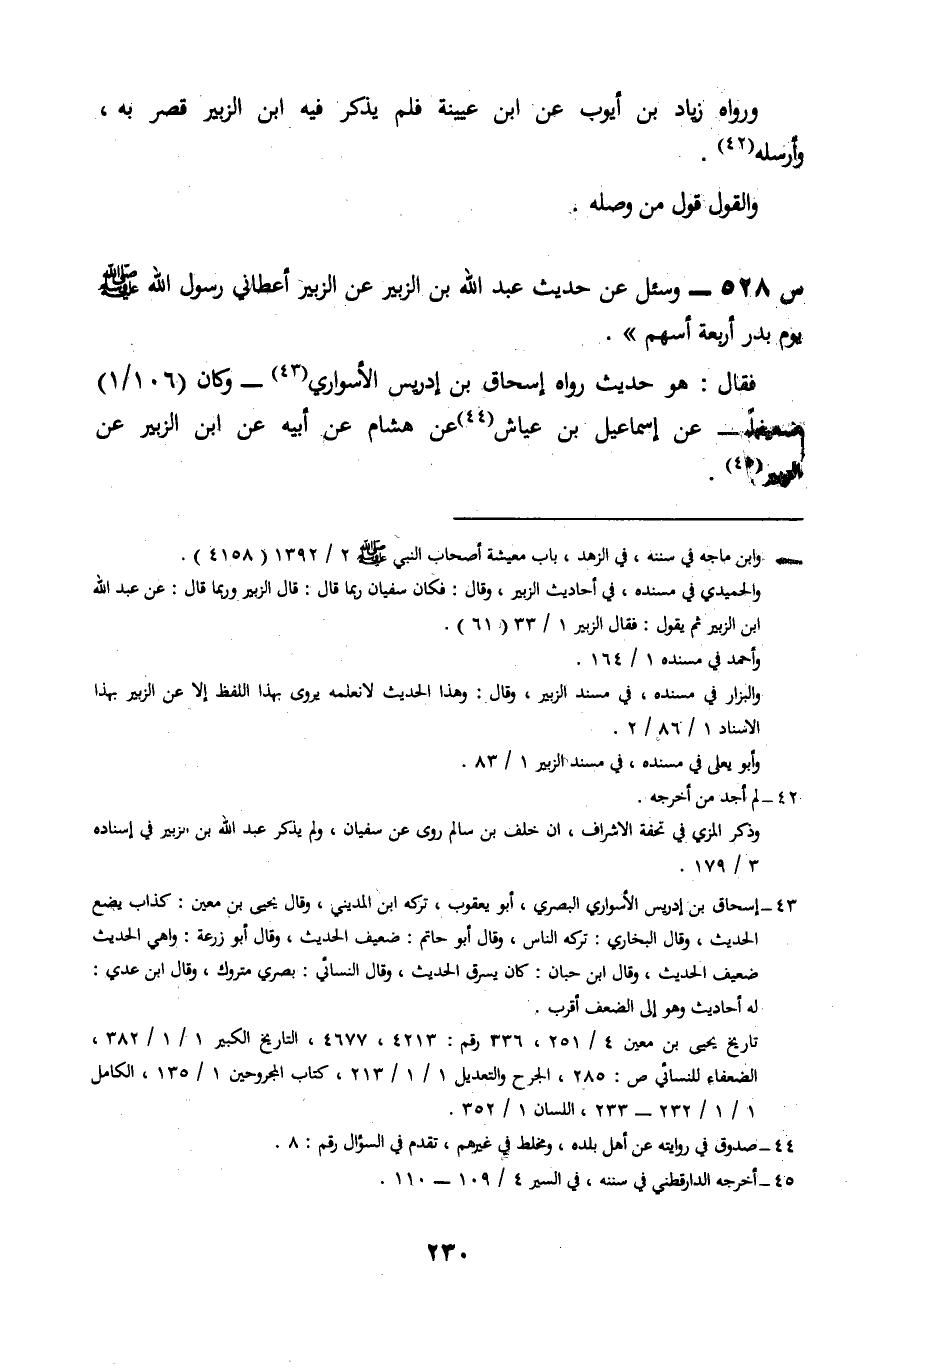 ورواه زياد بن أيوب عن ابن عيينة فلم يذكر فيه ابن الزبير قصر به ،
وأرسله(٤٢) .
والقول قول من وصله .
س ٥٢٨ ــ وسئل عن حديث عبد الله بن الزبير عن الزبير أعطاني رسول الله ﷺ
يوم بدر أربعة أسهم » .
فقال : هو حديث رواه إسحاق بن إدريس الأسواري(٤٣) ــ وكان (١/١٠٦)
ضعيفاً ــ عن إسماعيل بن عياش(٤٤)عن هشام عن أبيه عن ابن الزبير عن
الزبير(٤٥) .
ــ وابن ماجه في سننه ، في الزهد ، باب معيشة أصحاب النبي ﷺ ٢ / ١٣٩٢ ( ٤١٥٨ ) .
والحميدي في مسنده ، في أحاديث الزبير ، وقال : فكان سفيان ربما قال : قال الزبير وربما قال : عن عبد الله
ابن الزبير ثم يقول : فقال الزبير ١ / ٣٣ ( ٦١ ) .
وأحمد في مسنده ١ / ١٦٤ .
والبزار في مسنده ، في مسند الزبير ، وقال : وهذا الحديث لانعلمه يروى بهذا اللفظ إلا عن الزبير بهذا
الاسناد ١ / ٨٦ / ٢ .
وأبو يعلى في مسنده ، في مسند الزبير ١ / ٨٣ .
٤٢ ــ لم أجد من أخرجه .
وذكر المزي في تحفة الاشراف ، ان خلف بن سالم روى عن سفيان ، ولم يذكر عبد الله بن الزبير في إسناده
٣ / ١٧٩ .
٤٣ ــ إسحاق بن إدريس الأسواري البصري ، أبو يعقوب ، تركه ابن المديني ، وقال يحيى بن معين : كذاب يضع
الحديث ، وقال البخاري : تركه الناس ، وقال أبو حاتم : ضعيف الحديث ، وقال أبو زرعة : واهي الحديث
ضعيف الحديث ، وقال ابن حبان : كان يسرق الحديث ، وقال النسائي : بصري متروك ، وقال ابن عدي :
له أحاديث وهو إلى الضعف أقرب .
تاريخ يحيى بن معين ٤ / ٢٥١ ، ٣٣٦ رقم : ٤٢١٣ ، ٤٦٧٧ ، التاريخ الكبير ١ / ١ / ٣٨٢ ،
الضعفاء للنسائي ص : ٢٨٥ ، الجرح والتعديل ١ / ١ / ٢١٣ ، كتاب المجروحين ١ / ١٣٥ ، الكامل
١ / ١ / ٢٣٢ ــ ٢٣٣ ، اللسان ١ / ٣٥٢ .
٤٤ ــ صدوق في روايته عن أهل بلده ، ومخلط في غيرهم ، تقدم في السؤال رقم : ٨ .
٤٥ ــ أخرجه الدارقطني في سننه ، في السير ٤ / ١٠٩ ــ ١١٠ .
٢٣٠